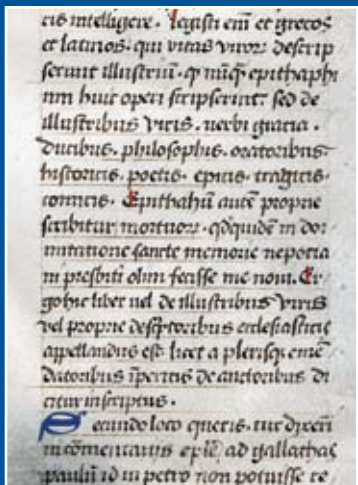 cis intelligere. Legisti eni et grecos
et latinos. qui vitas viror descrip
serunt illustriu. q nuq epithaphi
um huic operi scripserint: sed de
illustribus viris. verbi gratia.
ducibus. philosophis. oratoribus.
historicis. poetis. epicis. tragicis.
comicis. Epithahiu aute proprie
scribitur mortuor. qdquidem in dor
mitatione sancte memorie nepotia
ni presbiti olim fecisse me noui. Er
go hic liber uel de illustribus viris
vel proprie descptoribus ecclesiasticis
appellandus est. licet a plerisq eme
datoribus iperitis de auctoribus di
citur inscriptus.
Secundo loco queris. cur dixeri
in comentariis eple ad gallathas
paulu id in petro non potuisse re